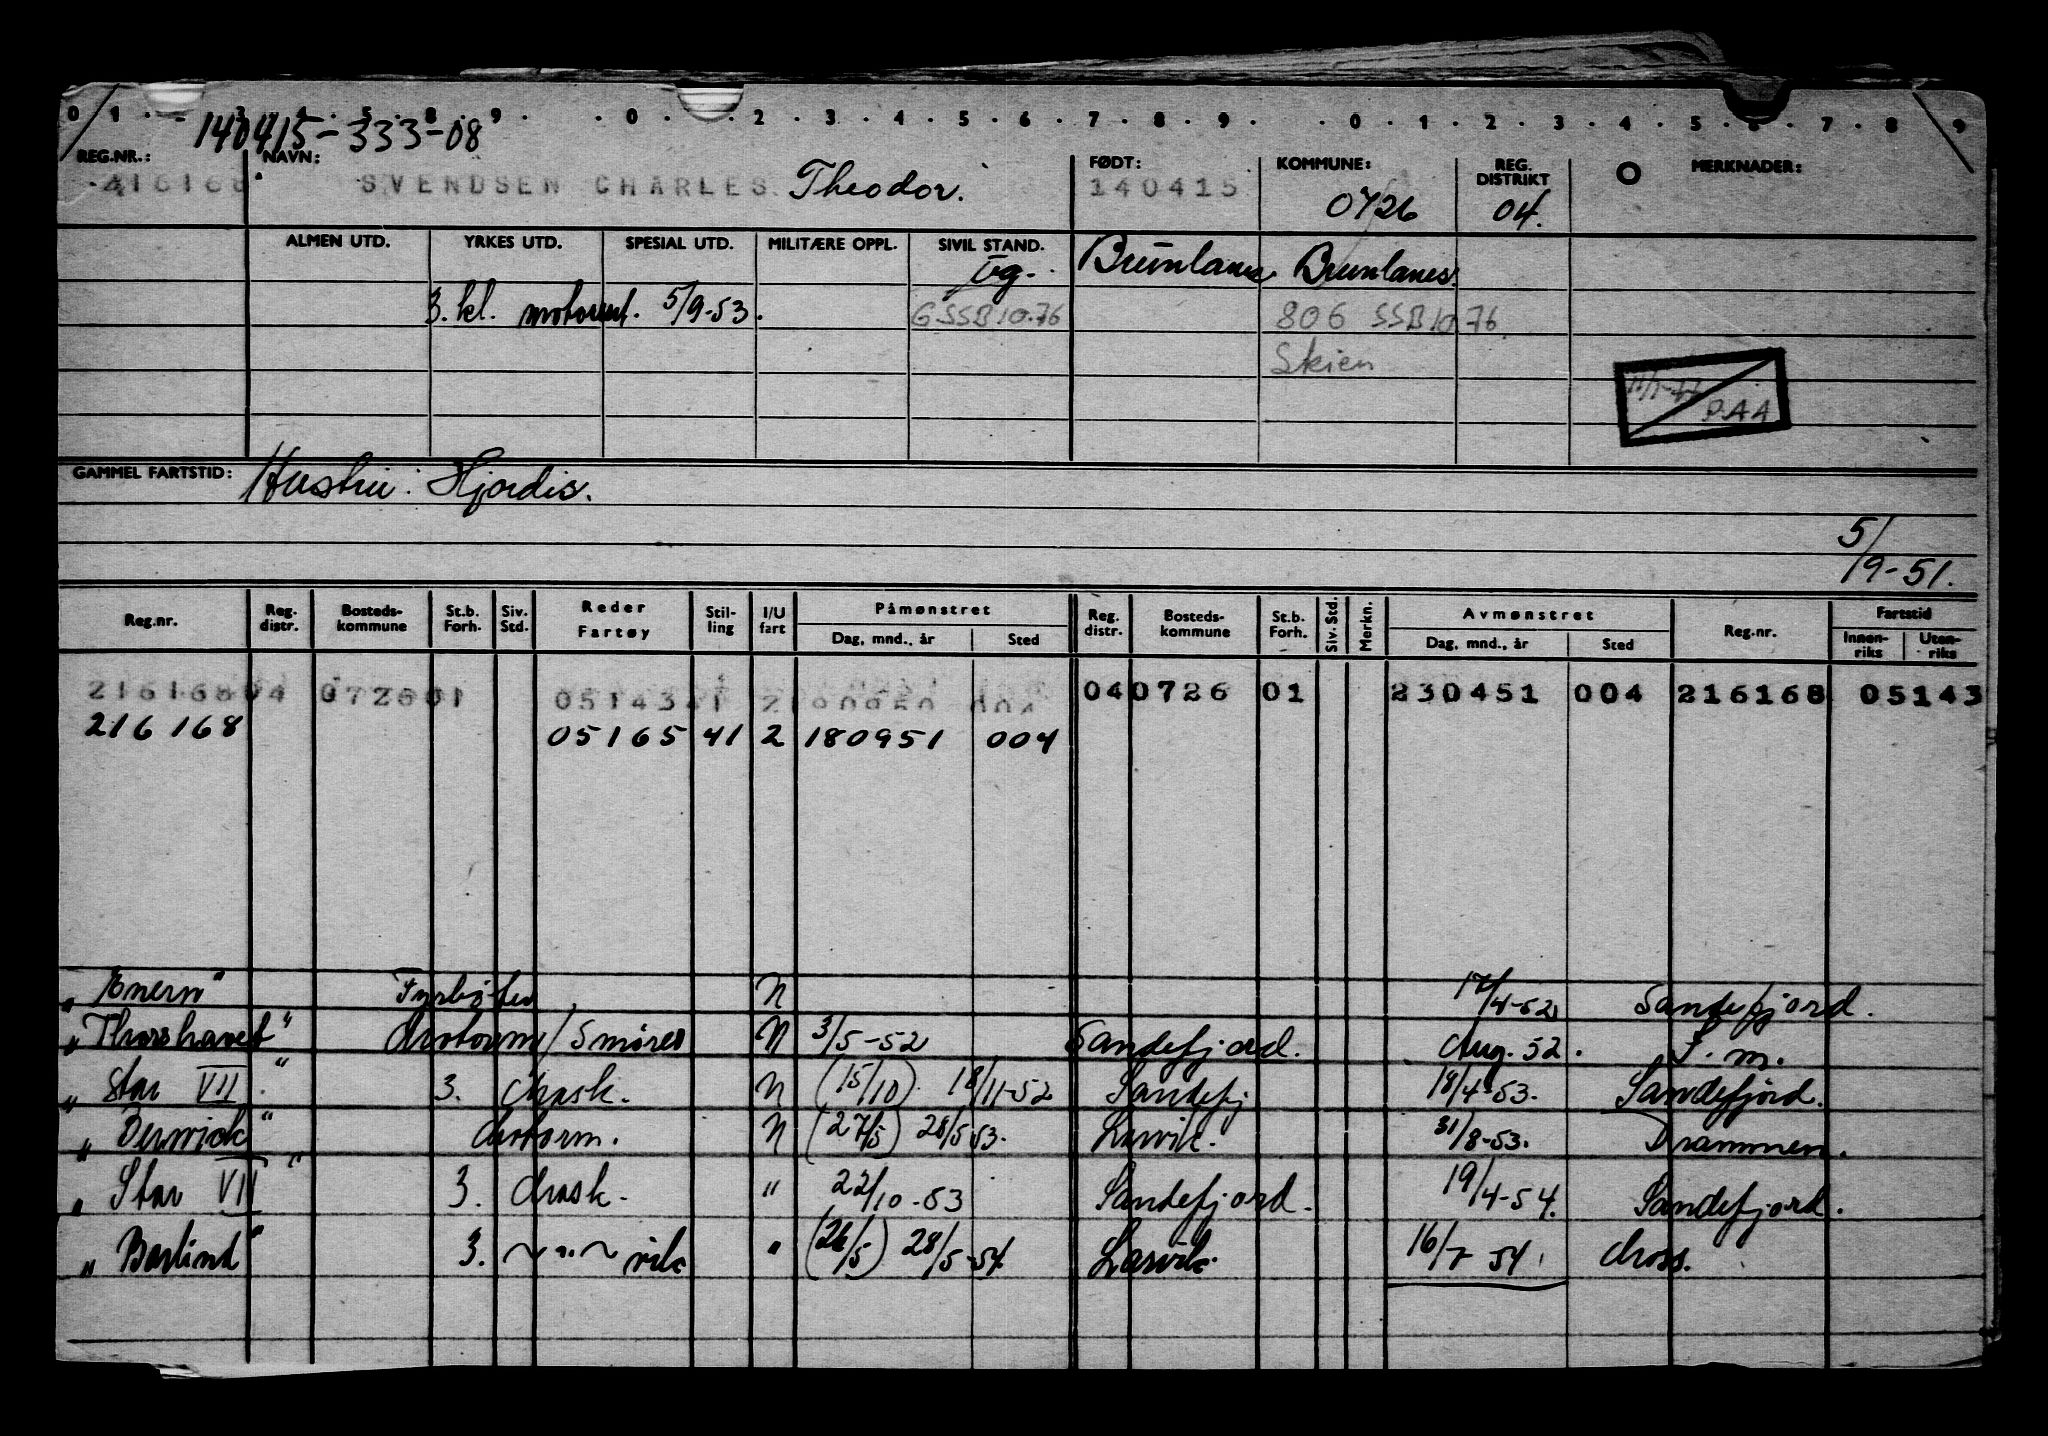 0 1 . . 3 . 4 . 5 . 8 . 9 . . 0 . . 2 . 3 . 4 . 5 . 6 . 7 . 8 . 9 . . 0 . 1 . 2 . 3 . 4 . 5 . 6 . 7 . 8 . 9
140415-333-08
REG.NR.: NAVN: FØDT: KOMMUNE: REG. DISTRIKT MERKNADER:
216168 SVENDSEN CHARLES Theodor. 140415 0726 04.
ALMEN UTD. YRKES UTD. SPESIAL UTD. MILITÆRE OPPL. SIVIL STAND.
ug. Brunlanes Brunlanes.
3. kl. motorsert. 5/9-53. GSSB10.76 806 SSB10 76
Skien
P.A.A
GAMMEL FARTSTID: Hustru: Hjordis.
5/9-51.
Reg.nr. Reg. distr. Bosteds-kommune St.b. Forh. Siv. Std. Reder Fartøy Stil-ling I/U fart Påmønstret Dag, mnd., år Sted Reg. distr. Bosteds-kommune St.b. Forh. Siv. Std. Merkn. Avmønstret Dag, mnd., år Sted Reg.nr. Fartstid Innen-riks Uten-riks
216168 04 0726 01 05143 004 04 0726 01 230451 004 216168 05143
216168 05165 41 2 180951 004
"Enern" Fyrbøter N 17/4-52 Sandefjord.
"Thorshavet" Motorm/Smører N 3/5-52 Sandefjord. Aug. 52. S.m.
"Star VII" 3. Mask. N (15/10) 18/11-52 Sandefj 18/4-53. Sandefjord.
"Berwick" Motorm. N (27/5) 28/5-53. Larvik. 31/8-53. Drammen.
"Star VII" 3. Mask. " 22/10-53 Sandefjord. 19/4-54. Sandefjord.
"Barlind" 3. ~"~ vik " (26/5) 28/5-54 Larvik. 16/7 54. Moss.